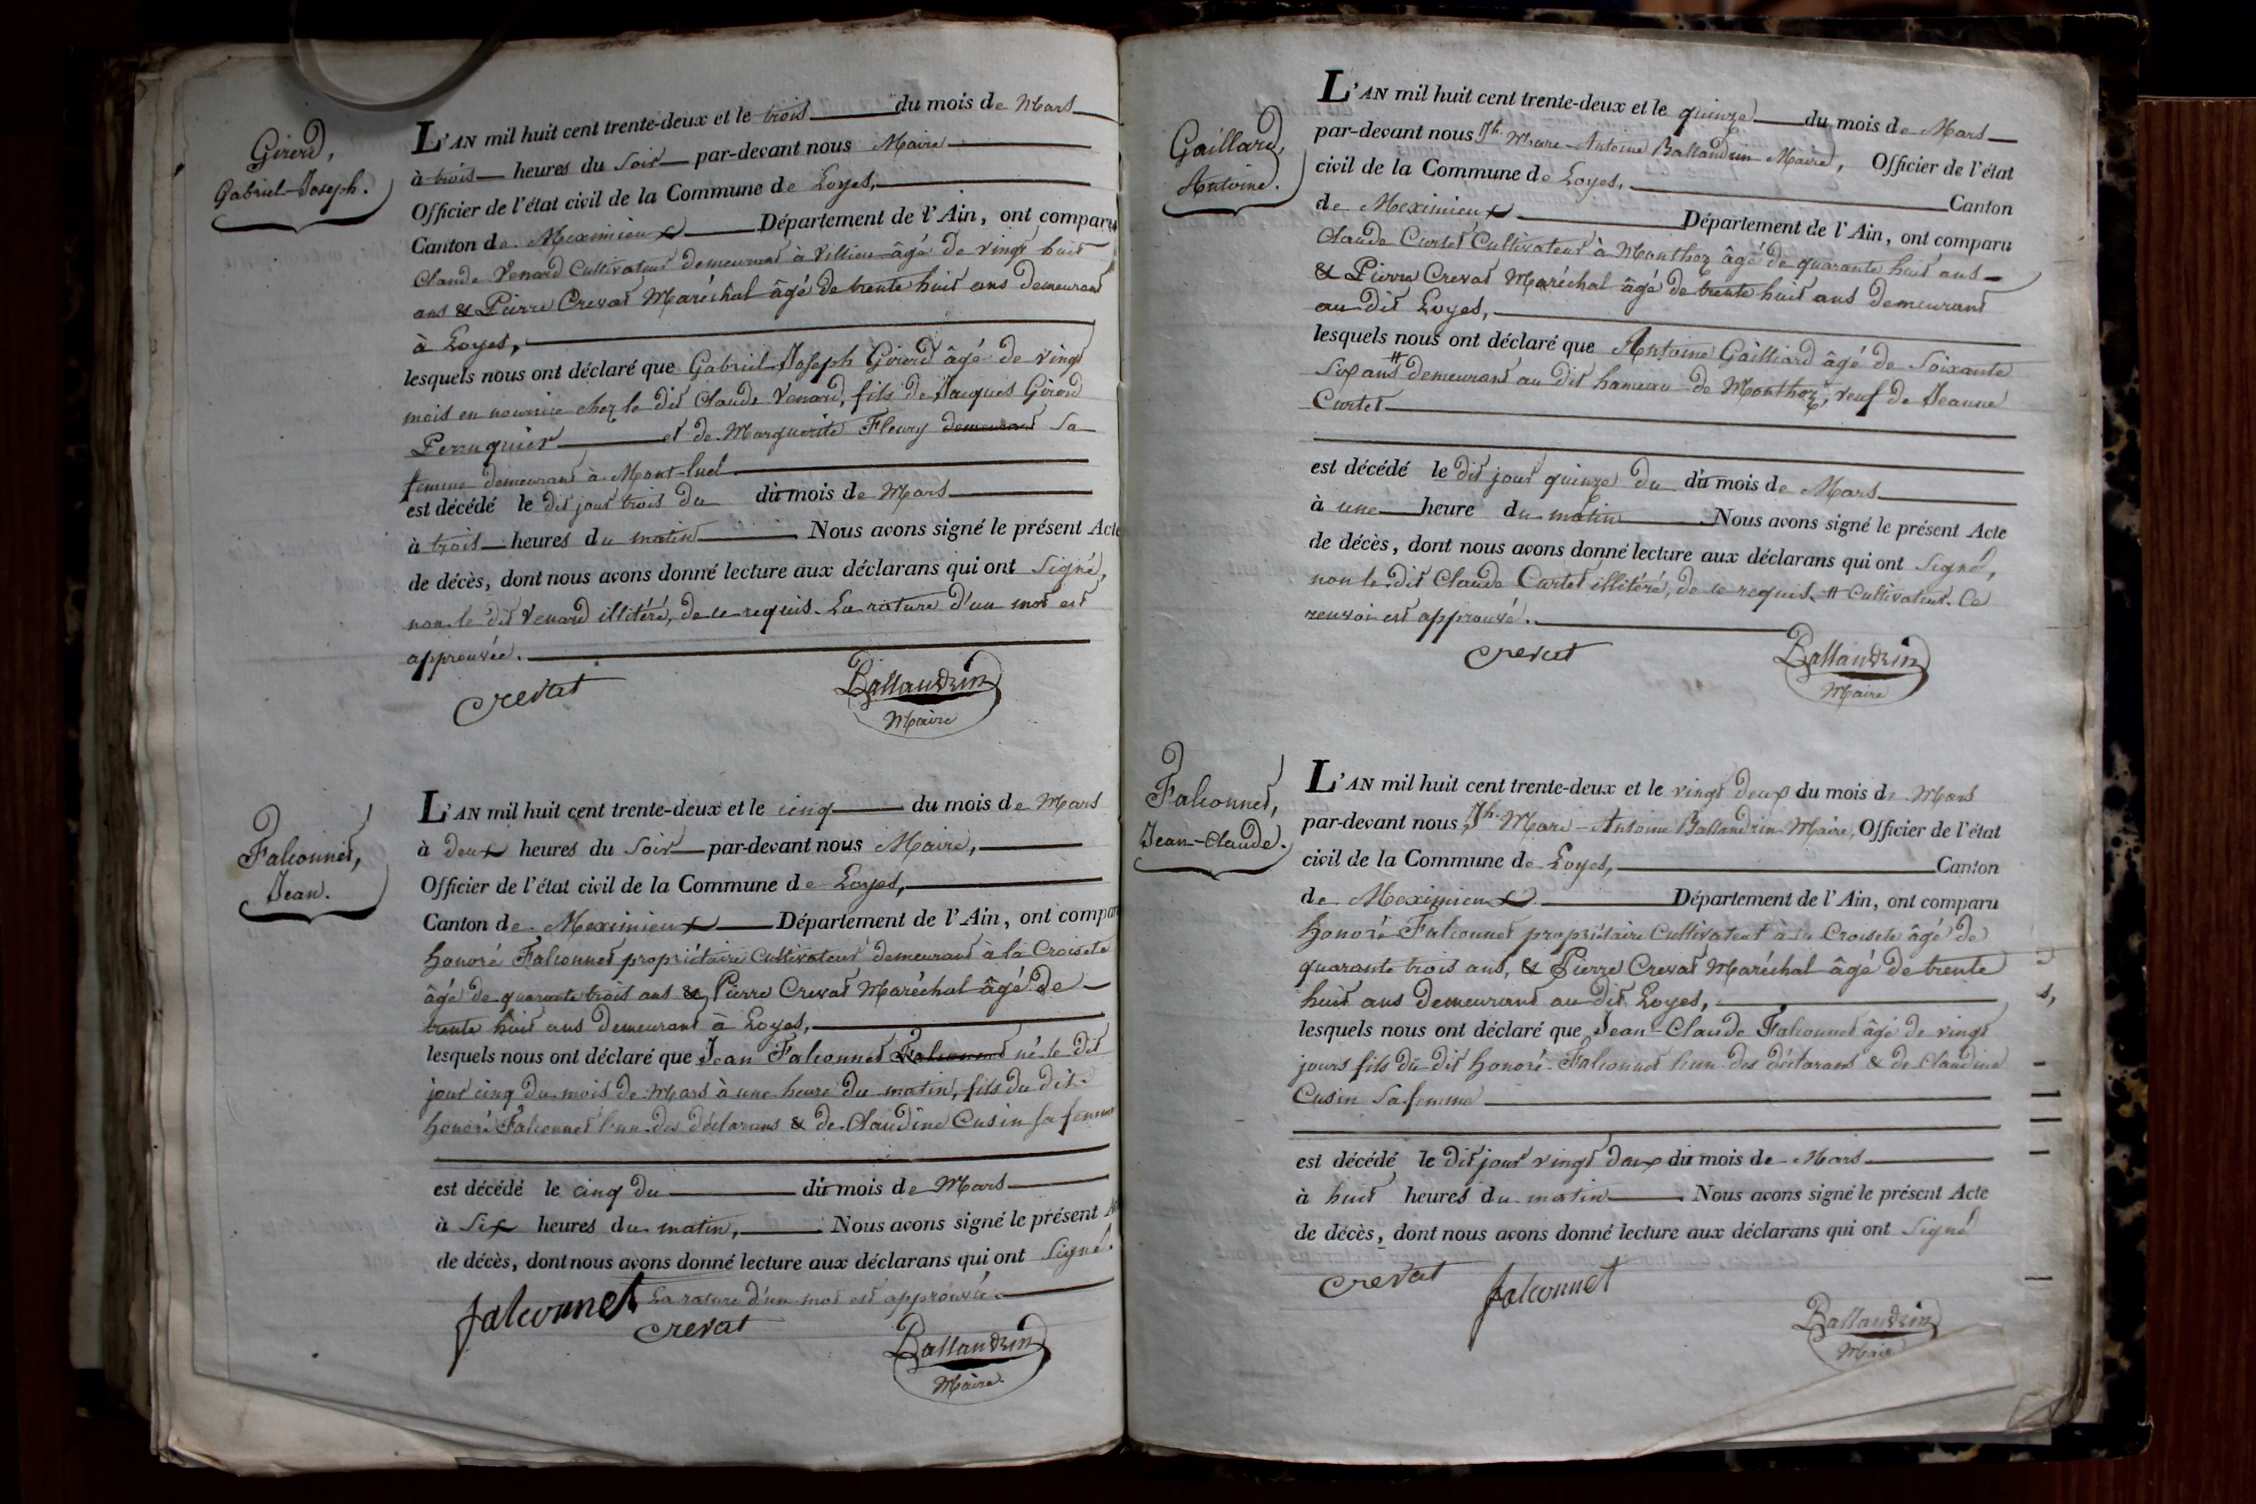 Girerd,
Gabriel-Joseph.
L'AN mil huit cent trente-deux et le trois du mois de Mars
à trois heures du Soir par-devant nous Maire
Officier de l'état civil de la Commune de Loyes,
Canton de Meximieux Département de l'Ain, ont comparu
Claude Venard Cultivateur demeurant à Villieu âgé de vingt huit
ans & Pierre Crevat Maréchal âgé de trente huit ans demeurant
à Loyes,
lesquels nous ont déclaré que Gabriel-Joseph Girerd âgé de vingt
mois en nourrice chez le dit Claude Venard, fils de Jacques Girerd
Perruquier et de Marguerite Fleury demeurant Sa
femme demeurant à Mont-luel
est décédé le dit jour trois du du mois de Mars
à trois heures du matin Nous avons signé le présent Acte
de décès, dont nous avons donné lecture aux déclarans qui ont Signé,
non le dit Venard illitéré, de ce requis. La rature d'un mot est
approuvée.
Crevat
Ballandrin
Maire
Falconnet,
Jean.
L'AN mil huit cent trente-deux et le cinq du mois de Mars
à deux heures du Soir par-devant nous Maire,
Officier de l'état civil de la Commune de Loyes,
Canton de Meximieux Département de l'Ain, ont compar
honoré Falconnet propriétaire Cultivateur demeurant à la Croisete
âgé de quarante trois ans & Pierre Crevat Maréchal âgé de
trente huit ans demeurant à Loyes,
lesquels nous ont déclaré que Jean Falconnet Falconnet né le dit
jour cinq du mois de Mars à une heure du matin, fils du dit
honoré Falconnet l'un des déclarans & de Claudine Cusin sa femme
est décédé le cinq du du mois de Mars
à Six heures du matin, Nous avons signé le présent A
de décès, dont nous avons donné lecture aux déclarans qui ont Signé.
La rature d'un mot est approuvée.
falconnet
Crevat
Ballandrin
Maire
Gaillard,
Antoine.
L'AN mil huit cent trente-deux et le quinze du mois de Mars
par-devant nous Jh. Marc-Antoine Ballandrin Maire, Officier de l'état
civil de la Commune de Loyes, Canton
de Meximieux Département de l'Ain, ont comparu
Claude Curtet Cultivateur à Monthoz âgé de quarante huit ans
& Pierre Crevat Maréchal âgé de trente huit ans demeurant
au dit Loyes,
lesquels nous ont déclaré que Antoine Gailliard âgé de Soixante
Six ans # demeurant au dit hameau de Monthoz, veuf de Jeanne
Curtet
est décédé le dit jour quinze du du mois de Mars
à une heure du matin Nous avons signé le présent Acte
de décès, dont nous avons donné lecture aux déclarans qui ont Signé,
non le dit Claude Curtet illitéré, de ce requis. # Cultivateur. Ce
renvoi est approuvé.
Crevat
Ballandrin
Maire
Falconnet,
Jean-Claude.
L'AN mil huit cent trente-deux et le vingt deux du mois de Mars
par-devant nous Jh. Marc-Antoine Ballandrin Maire, Officier de l'état
civil de la Commune de Loyes, Canton
de Meximieux Département de l'Ain, ont comparu
honoré Falconnet propriétaire Cultivateur à la Croisete âgé de
quarante trois ans, & Pierre Crevat Maréchal âgé de trente
huit ans demeurant au dit Loyes,
lesquels nous ont déclaré que Jean-Claude Falconnet âgé de vingt
jours fils du dit honoré Falconnet l'un des déclarans & de Claudine
Cusin Sa femme
est décédé le dit jour vingt deux du mois de Mars
à huit heures du matin Nous avons signé le présent Acte
de décès, dont nous avons donné lecture aux déclarans qui ont Signé
Crevat
falconnet
Ballandrin
Maire